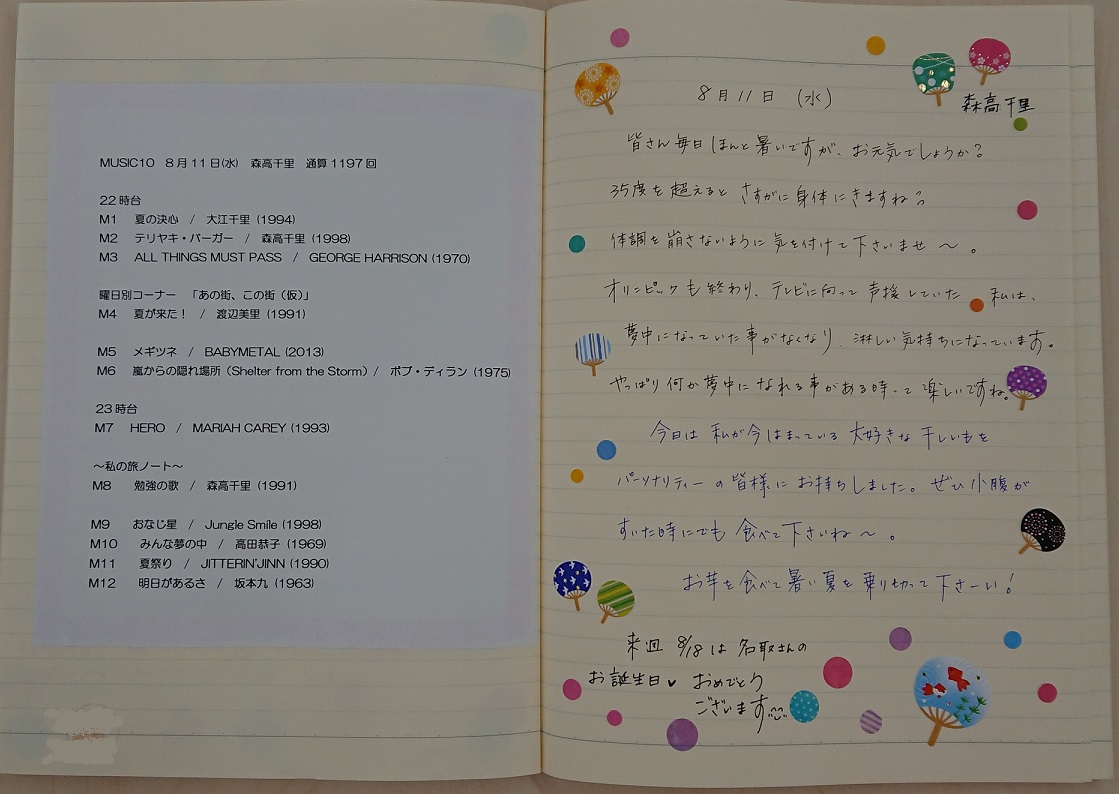 MUSIC10 8月11日(水) 森高千里 通算1197回
22時台
M1 夏の決心 / 大江千里 (1994)
M2 テリヤキ・バーガー / 森高千里 (1998)
M3 ALL THINGS MUST PASS / GEORGE HARRISON (1970)
曜日別コーナー 「あの街、この街(仮)」
M4 夏が来た! / 渡辺美里 (1991)
M5 メギツネ / BABYMETAL (2013)
M6 嵐からの隠れ場所(Shelter from the Storm) / ボブ・ディラン (1975)
23時台
M7 HERO / MARIAH CAREY (1993)
～私の旅ノート～
M8 勉強の歌 / 森高千里 (1991)
M9 おなじ星 / Jungle Smile (1998)
M10 みんな夢の中 / 高田恭子 (1969)
M11 夏祭り / JITTERIN'JINN (1990)
M12 明日があるさ / 坂本九 (1963)
8月11日 (水)
森高千里
皆さん毎日ほんと暑いですが、お元気でしょうか?
35度を超えるとさすがに身体にきますね?
体調を崩さないように気を付けて下さいませ〜。
オリンピックも終わり、テレビに向って声援していた私は、
夢中になっていた事がなくなり、淋しい気持ちになっています。
やっぱり何か夢中になれる事がある時って楽しいですね。
今日は私が今はまっている大好きな干しいもを
パーソナリティーの皆様にお持ちしました。ぜひ小腹が
すいた時にでも食べて下さいね〜。
お芋を食べて暑い夏を乗り切って下さーい!
来週 8/18は名取さんの
お誕生日♥ おめでとう
ございます